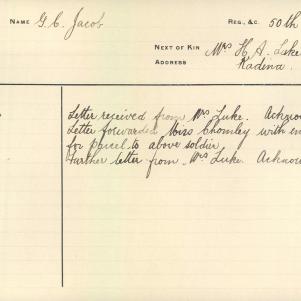 NAME G. C. Jacob REG., &C. 50th
NEXT OF KIN Mrs H. A. Luke
ADDRESS Kadina.
Letter received from Mrs Luke. Acknow
Letter forwarded Miss Chomley with en
for parcel to above soldier
Further letter from Mrs Luke. Acknow